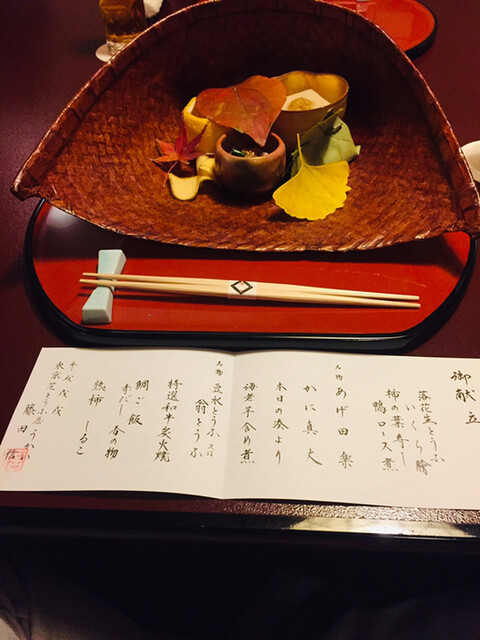 御献立
落花生とうふ
いくら膾
柿の葉寿し
鴨ロース煮
名物 あげ田楽
かに真丈
本日の湊より
海老芋含め煮
名物 豆水とうふ又は
翁とうふ
特選和牛炭火焼
鯛ご飯
赤だし 香の物
熟柿 しるこ
平成戊戌
東京芝とうふ屋うかい
藤田